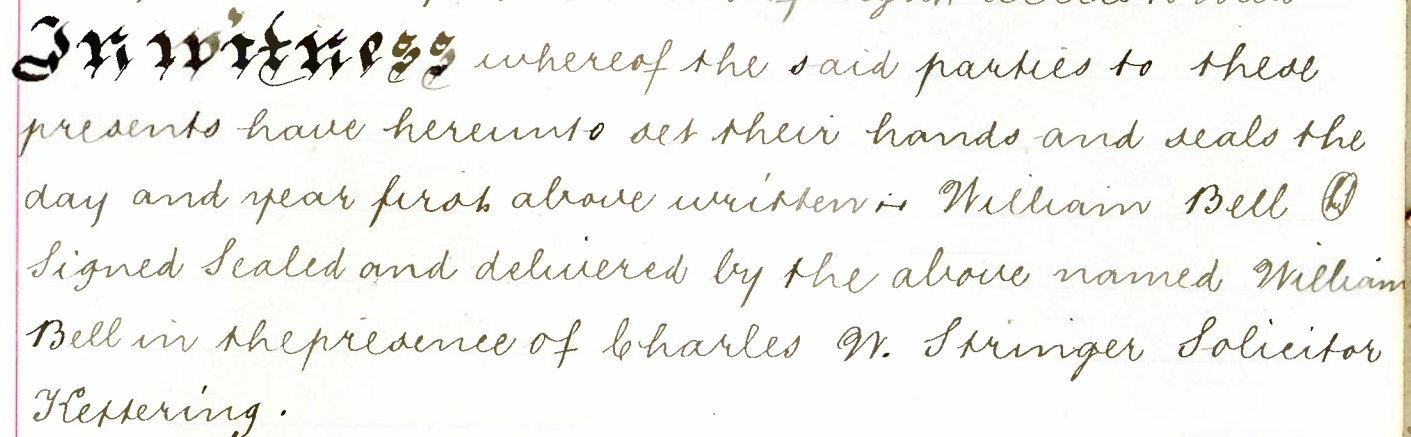 In witness whereof the said parties to these
presents have hereunto set their hands and seals the
day and year first above written :- William Bell
Signed Sealed and delivered by the above named William
Bell in the presence of Charles W. Stringer Solicitor
Kettering.